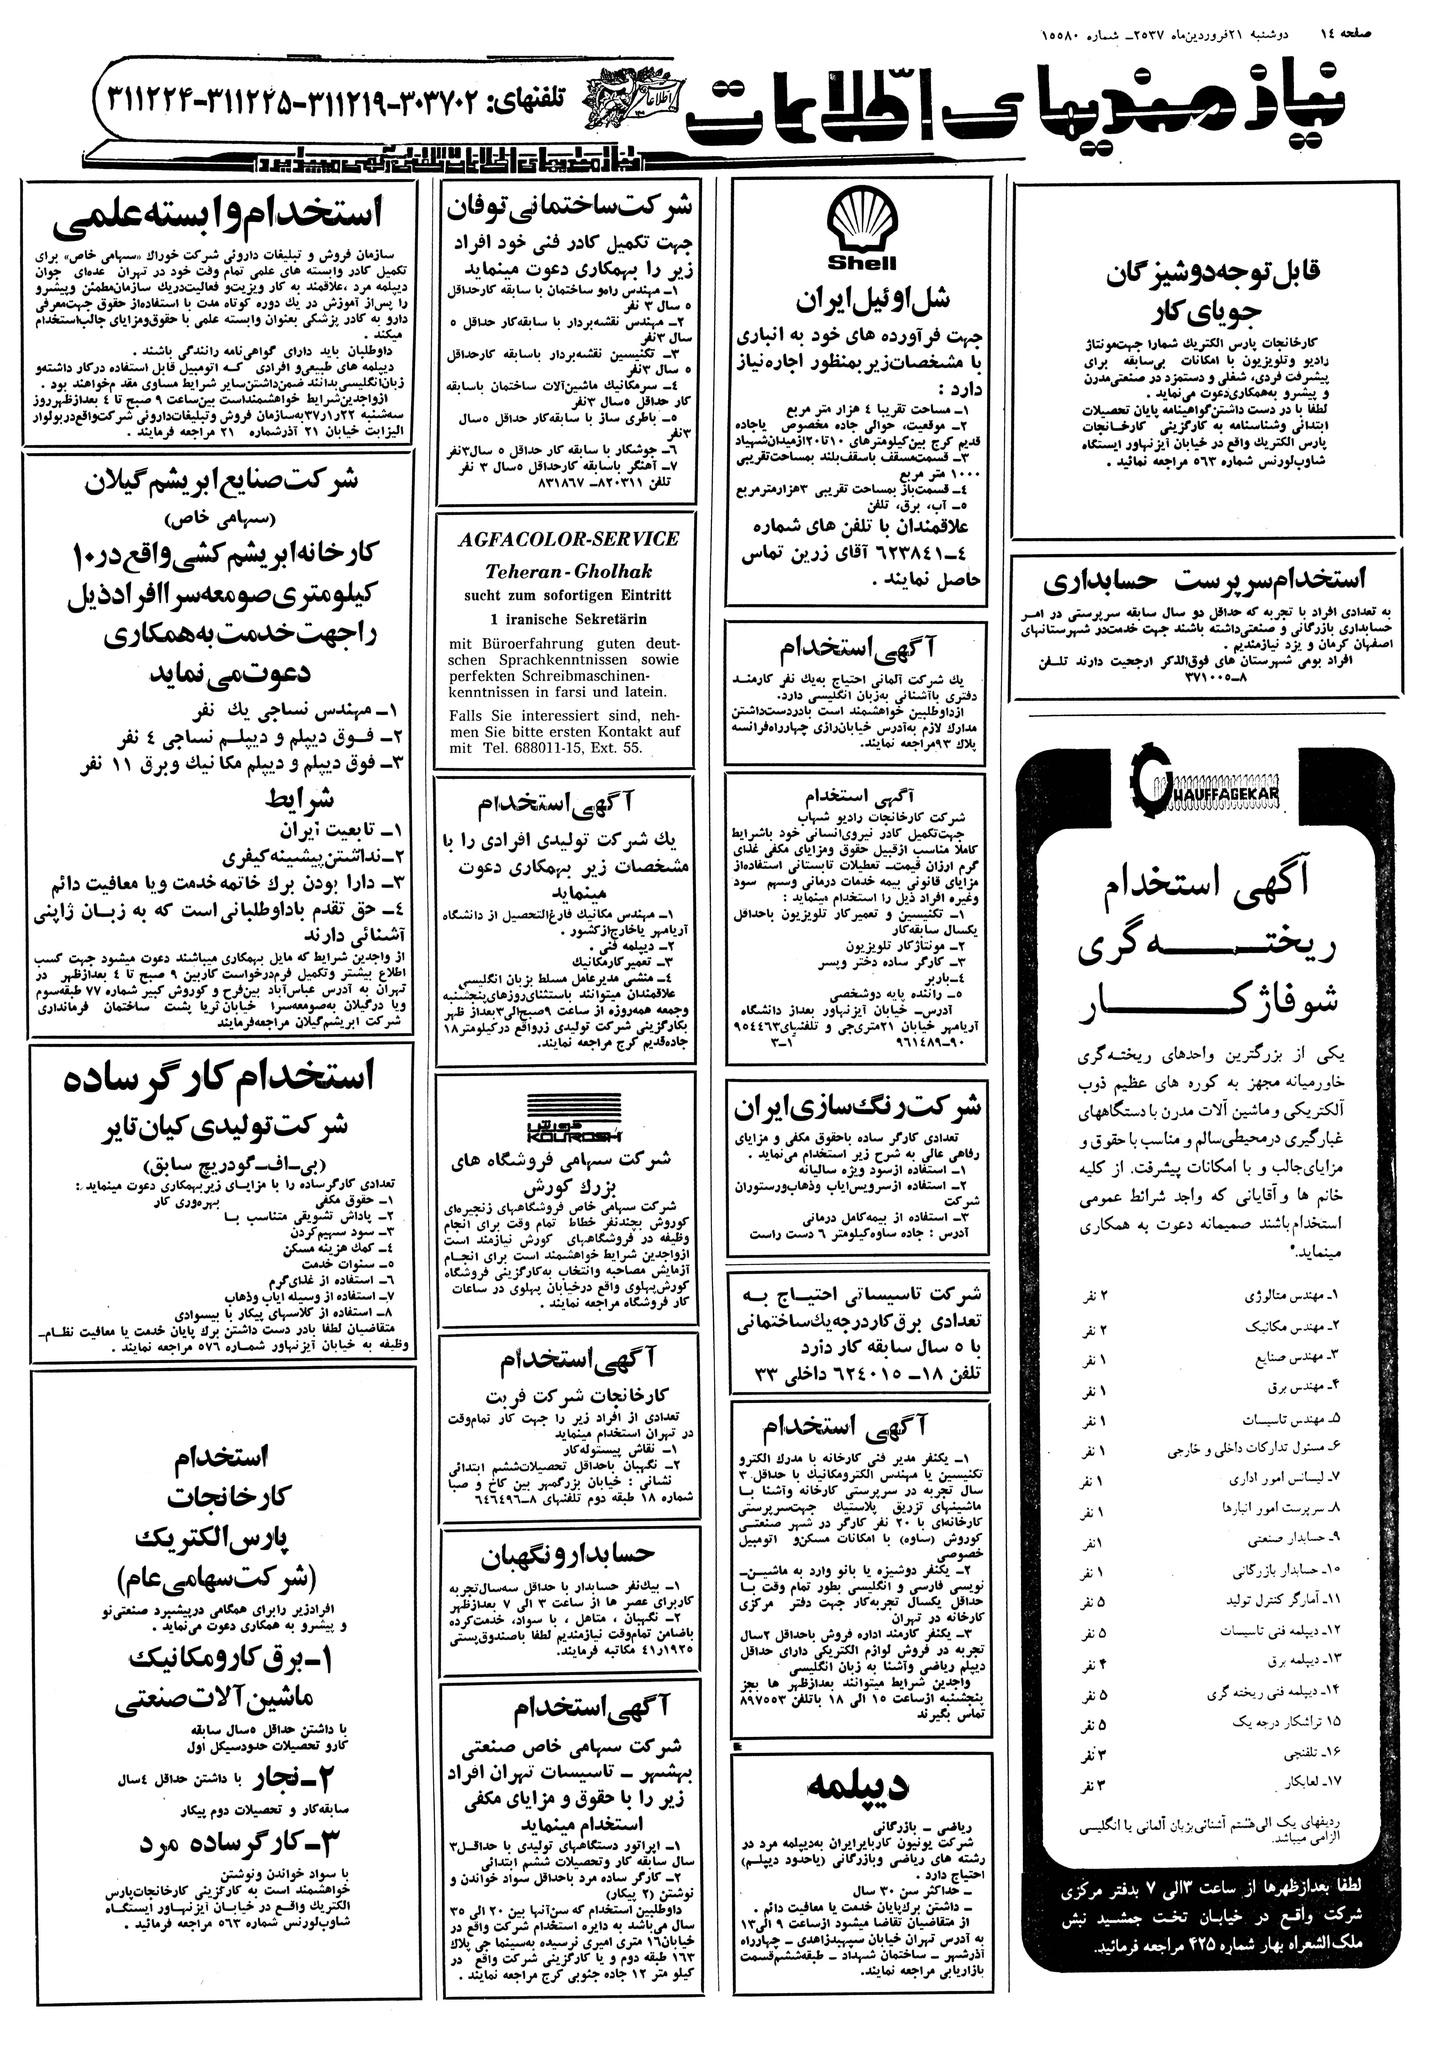 صفحه ١٤ دوشنبه ٢١فروردین‌ماه ٢٥٣٧ـ شماره ١٥٥٨٠
نیازمندیهای اطلاعات
تلفنهای: ۳۰۳۷۰۲-۳۱۱۲۱۹-۳۱۱۲۲۵-۳۱۱۲۲۴
قابل توجه دوشیزگان
جویای کار
کارخانجات پارس الکتریك شمارا جهت‌مونتاژ
رادیو وتلویزیون با امکانات بی‌سابقه برای
پیشرفت فردی، شغلی و دستمزد در صنعتی‌مدرن
و پیشرو به‌همکاری‌دعوت می‌نماید .
لطفا با در دست داشتن‌گواهینامه پایان تحصیلات
ابتدائی وشناسنامه به کارگزینی کارخانجات
پارس الکتریك واقع در خیابان آیزنهاور ایستگاه
شاوپ‌لورنس شماره ٥٦٣ مراجعه نمائید .
استخدام‌سرپرست حسابداری
به تعدادی افراد با تجربه که حداقل دو سال سابقه سرپرستی در امر
حسابداری بازرگانی و صنعتی‌داشته باشند جهت خدمت‌در شهرستانهای
اصفهان کرمان و یزد نیازمندیم .
افراد بومی شهرستان های فوق‌الذکر ارجحیت دارند تلفن
۸ـ۳۷۱۰۰۵
CHAUFFAGEKAR
آگهی استخدام
ریخته‌گری
شوفاژکار
یکی از بزرگترین واحدهای ریخته‌گری
خاورمیانه مجهز به کوره های عظیم ذوب
الکتریکی و ماشین آلات مدرن با دستگاههای
غبارگیری درمحیطی سالم و مناسب با حقوق و
مزایای جالب و با امکانات پیشرفت. از کلیه
خانم ها و آقایانی که واجد شرائط عمومی
استخدام باشند صمیمانه دعوت به همکاری
مینماید.
۱ـ مهندس متالوژی ۲ نفر
۲ـ مهندس مکانیک ۲ نفر
۳ـ مهندس صنایع ۱ نفر
۴ـ مهندس برق ۱ نفر
۵ـ مهندس تاسیسات ۱ نفر
۶ـ مسئول تدارکات داخلی و خارجی ۱ نفر
۷ـ لیسانس امور اداری ۱ نفر
۸ـ سرپرست امور انبارها ۱ نفر
۹ـ حسابدار صنعتی ۱نفر
۱۰ـ حسابدار بازرگانی ۱ نفر
۱۱ـ آمارگر کنترل تولید ۵ نفر
۱۲ـ دیپلمه فنی تاسیسات ۵ نفر
۱۳ـ دیپلمه برق ۴ نفر
۱۴ـ دیپلمه فنی ریخته گری ۵ نفر
۱۵ تراشکار درجه یک ۵ نفر
۱۶ـ تلفنچی ۳ نفر
۱۷ـ لعابکار ۳ نفر
ردیفهای یک الی‌هشتم آشنائی بزبان آلمانی یا انگلیسی
الزامی میباشد.
لطفا بعدازظهرها از ساعت ۳الی ۷ بدفتر مرکزی
شرکت واقع در خیابان تخت جمشید نبش
ملک‌الشعراء بهار شماره ۴۲۵ مراجعه فرمائید.
Shell
شل اوئیل ایران
جهت فرآورده های خود به انباری
با مشخصات زیر بمنظور اجاره نیاز
دارد :
۱ـ مساحت تقریبا ٤ هزار متر مربع
۲ـ موقعیت، حوالی جاده مخصوص یاجاده
قدیم کرج بین‌کیلومترهای ۱۰تا۲۰ازمیدان‌شهیاد
۳ـ قسمت‌مسقف باسقف‌بلند بمساحت‌تقریبی
۱۰۰۰ متر مربع
٤ـ قسمت‌باز بمساحت تقریبی ۳هزارمترمربع
٥ـ آب، برق، تلفن
علاقمندان با تلفن های شماره
٤ـ٦٢٣٨٤١ آقای زرین تماس
حاصل نمایند .
آگهی استخدام
یك شرکت آلمانی احتیاج به‌یك نفر کارمند
دفتری باآشنائی به‌زبان انگلیسی دارد.
ازداوطلبین خواهشمند است بادردست‌داشتن
مدارك لازم به‌آدرس خیابان‌رازی چهارراه‌فرانسه
پلاك ۹۳مراجعه نمایند.
آگهی استخدام
شرکت کارخانجات رادیو شهاب
جهت‌تکمیل کادر نیروی‌انسانی خود باشرایط
کاملا مناسب ازقبیل حقوق ومزایای مکفی غذای
گرم ارزان قیمت- تعطیلات تابستانی استفاده از
مزایای قانونی بیمه خدمات درمانی وسهم سود
وغیره افراد ذیل را استخدام مینماید :
۱ـ تکنیسین و تعمیرکار تلویزیون باحداقل
یکسال سابقه‌کار
۲ـ مونتاژکار تلویزیون
۳ـ کارگر ساده دختر وپسر
٤ـ باربر
٥ـ راننده پایه دوشخصی
آدرس- خیابان آیزنهاور بعداز دانشگاه
آریامهر خیابان ۲۱متری‌جی و تلفنهای٩٥٤٤٦٣
٩٠-٩٦١٤٨٩ ۱ـ۳
شرکت رنگ‌سازی ایران
تعدادی کارگر ساده باحقوق مکفی و مزایای
رفاهی عالی به شرح زیر استخدام می‌نماید .
۱ـ استفاده ازسود ویژه سالیانه
۲ـ استفاده ازسرویس‌ایاب وذهاب‌ورستوران
شرکت
۳ـ استفاده از بیمه‌کامل درمانی
آدرس : جاده ساوه‌کیلومتر ٦ دست راست
شرکت تاسیساتی احتیاج به
تعدادی برق کاردرجه‌یك‌ساختمانی
با ٥ سال سابقه کار دارد
تلفن ۱۸ـ ٦٢٤٠١٥ داخلی ۳۳
آگهی استخدام
۱ـ یکنفر مدیر فنی کارخانه با مدرك الکترو
تکنیسین یا مهندس الکترومکانیك با حداقل ۳
سال تجربه در سرپرستی کارخانه وآشنا با
ماشینهای تزریق پلاستیك جهت‌سرپرستی
کارخانه‌ای با ۲۰ نفر کارگر در شهر صنعتی
کوروش (ساوه) با امکانات مسکن‌و اتومبیل
خصوصی
۲ـ یکنفر دوشیزه یا بانو وارد به ماشین-
نویسی فارسی و انگلیسی بطور تمام وقت با
حداقل یکسال تجربه‌کار جهت دفتر مرکزی
کارخانه در تهران
۳ـ یکنفر کارمند اداره فروش باحداقل ۲سال
تجربه در فروش لوازم الکتریکی دارای حداقل
دیپلم ریاضی وآشنا به زبان انگلیسی
واجدین شرایط میتوانند بعدازظهر ها بجز
پنجشنبه ازساعت ۱٥ الی ۱۸ باتلفن ٨٩٧٥٥٣
تماس بگیرند
دیپلمه
ریاضی - بازرگانی
شرکت یونیون کاربایرایران به‌دیپلمه مرد در
رشته های ریاضی وبازرگانی (یاحدود دیپلم)
احتیاج دارد .
- حداکثر سن ۳۰ سال
- داشتن برك‌پایان خدمت یا معافیت دائم .
از متقاضیان تقاضا میشود ازساعت ۹ الی۱۳
به آدرس تهران خیابان سپهبدزاهدی - چهارراه
آذرشهر - ساختمان شهداد - طبقه‌ششم‌قسمت
بازاریابی مراجعه نمایند.
شرکت ساختمانی توفان
جهت تکمیل کادر فنی خود افراد
زیر را بهمکاری دعوت مینماید
۱ـ مهندس راه‌و ساختمان با سابقه کارحداقل
٥ سال ۳ نفر
۲ـ مهندس نقشه‌بردار با سابقه‌کار حداقل ٥
سال ۳نفر
۳ـ تکنیسین نقشه‌بردار باسابقه کارحداقل
٥ سال ۳نفر
٤ـ سرمکانیك ماشین‌آلات ساختمان باسابقه
کار حداقل ٥سال ۳نفر
٥ـ باطری ساز با سابقه‌کار حداقل ٥سال
۳نفر
٦ـ جوشکار با سابقه کار حداقل ٥ سال۳نفر
٧ـ آهنگر باسابقه کارحداقل ٥سال ۳ نفر
تلفن ٨٢٠٣١١- ٨٣١٨٦٧
AGFACOLOR-SERVICE
Teheran-Gholhak
sucht zum sofortigen Eintritt
1 iranische Sekretärin
mit Büroerfahrung guten deut-
schen Sprachkenntnissen sowie
perfekten Schreibmaschinen-
kenntnissen in farsi und latein.
Falls Sie interessiert sind, neh-
men Sie bitte ersten Kontakt auf
mit Tel. 688011-15, Ext. 55.
آگهی استخدام
یك شرکت تولیدی افرادی را با
مشخصات زیر بهمکاری دعوت
مینماید
۱ـ مهندس مکانیك فارغ‌التحصیل از دانشگاه
آریامهر یاخارج ازکشور .
۲ـ دیپلمه فنی .
۳ـ تعمیرکارمکانیك
٤ـ منشی مدیرعامل مسلط بزبان انگلیسی
علاقمندان میتوانند باستثنای‌روزهای‌پنجشنبه
وجمعه همه‌روزه از ساعت ۹صبح‌الی۳بعداز ظهر
بکارگزینی شرکت تولیدی زرواقع درکیلومتر۱۸
جاده‌قدیم کرج مراجعه نمایند.
کورش
KOUROSH
شرکت سهامی فروشگاه های
بزرك کورش
شرکت سهامی خاص فروشگاههای زنجیره‌ای
کوروش بچندنفر خطاط تمام وقت برای انجام
وظیفه در فروشگاههای کورش نیازمند است
ازواجدین شرایط خواهشمند است برای انجام
آزمایش مصاحبه وانتخاب به‌کارگزینی فروشگاه
کورش‌پهلوی واقع درخیابان پهلوی در ساعات
کار فروشگاه مراجعه نمایند .
آگهی استخدام
کارخانجات شرکت فربت
تعدادی از افراد زیر را جهت کار تمام‌وقت
در تهران استخدام مینماید
۱ـ نقاش پیستوله‌کار
۲ـ نگهبان باحداقل تحصیلات‌ششم ابتدائی
نشانی : خیابان بزرگمهر بین کاخ و صبا
شماره ۱۸ طبقه دوم تلفنهای ۸-٦٤٦٤٩٦
حسابدارونگهبان
۱ـ بیك‌نفر حسابدار با حداقل سه‌سال‌تجربه
کاربرای عصر ها از ساعت ۳ الی ۷ بعدازظهر
۲ـ نگهبان ، متاهل ، با سواد، خدمت‌کرده
باضامن تمام‌وقت نیازمندیم لطفا باصندوق‌پستی
۱۹۲٥ر٤۱ مکاتبه فرمایند.
آگهی استخدام
شرکت سهامی خاص صنعتی
بهشهر - تاسیسات تهران افراد
زیر را با حقوق و مزایای مکفی
استخدام مینماید
۱ـ اپراتور دستگاههای تولیدی با حداقل۳
سال سابقه کار وتحصیلات ششم ابتدائی
۲ـ کارگر ساده مرد باحداقل سواد خواندن و
نوشتن (۲ پیکار)
داوطلبین استخدام که سن‌آنها بین ۲۰ الی ۳٥
سال می‌باشد به دایره استخدام شرکت واقع در
خیابان۱٦ متری امیری نرسیده به‌سینما جی پلاك
۱٦۳ طبقه دوم و یا کارگزینی شرکت واقع در
کیلو متر ۱۲ جاده جنوبی کرج مراجعه نمایند .
استخدام وابسته علمی
سازمان فروش و تبلیغات داروئی شرکت خوراك «سهامی خاص» برای
تکمیل کادر وابسته های علمی تمام وقت خود در تهران عده‌ای جوان
دیپلمه مرد ،علاقمند به کار ویزیت‌و فعالیت‌دریك سازمان‌مطمئن وپیشرو
را پس‌از آموزش در یك دوره کوتاه مدت با استفاده‌از حقوق جهت‌معرفی
دارو به کادر پزشکی بعنوان وابسته علمی با حقوق‌ومزایای جالب‌استخدام
میکند .
داوطلبان باید دارای گواهی‌نامه رانندگی باشند .
دیپلمه های طبیعی‌و افرادی که اتومبیل قابل استفاده درکار داشته‌و
زبان‌انگلیسی‌بدانند ضمن‌داشتن‌سایر شرایط مساوی مقدم‌خواهند بود .
ازواجدین شرایط خواهشمنداست بین‌ساعت ۹ صبح تا ٤ بعدازظهرروز
سه‌شنبه ۲۲ر۱ر۳۷به‌سازمان فروش وتبلیغات‌داروئی شرکت‌واقع‌دربولوار
الیزابت خیابان ۲۱ آذرشماره ۲۱ مراجعه فرمایند .
شرکت صنایع ابریشم گیلان
(سهامی خاص)
کارخانه ابریشم کشی واقع در۱۰
کیلومتری صومعه سرا افراد ذیل
را جهت خدمت به همکاری
دعوت می نماید
۱ـ مهندس نساجی یك نفر
۲ـ فوق دیپلم و دیپلم نساجی ٤ نفر
۳ـ فوق دیپلم و دیپلم مکانیك وبرق ۱۱ نفر
شرایط
۱ـ تابعیت ایران
۲ـ نداشتن پیشینه کیفری
۳ـ دارا بودن برك خاتمه خدمت ویا معافیت دائم
٤ـ حق تقدم باداوطلبانی است که به زبان ژاپنی
آشنائی دارند
از واجدین شرایط که مایل بهمکاری میباشند دعوت میشود جهت کسب
اطلاع بیشتر وتکمیل فرم‌درخواست کاربین ۹ صبح تا ٤ بعدازظهر در
تهران به آدرس عباس‌آباد بین‌فرح و کوروش کبیر شماره ۷۷ طبقه‌سوم
ویا درگیلان به‌صومعه‌سرا خیابان‌ثریا پشت ساختمان فرمانداری
شرکت ابریشم‌گیلان مراجعه‌فرمایند
استخدام کارگر ساده
شرکت تولیدی کیان تایر
(بی-اف-گودریچ سابق)
تعدادی کارگرساده را با مزایای زیربهمکاری دعوت مینماید :
۱ـ حقوق مکفی بهره‌وری کار
۲ـ پاداش تشویقی متناسب با
۳ـ سود سهیم‌کردن
٤ـ کمك هزینه مسکن
٥ـ سنوات خدمت
٦ـ استفاده از غذای‌گرم
۷ـ استفاده از وسیله ایاب وذهاب
۸ـ استفاده از کلاسهای پیکار با بیسوادی
متقاضیان لطفا بادر دست داشتن برك پایان خدمت یا معافیت نظام-
وظیفه به خیابان آیزنهاور شماره ٥٧٦ مراجعه نمایند .
استخدام
کارخانجات
پارس الکتریك
(شرکت سهامی عام)
افرادزیر رابرای همگامی درپیشبرد صنعتی‌نو
و پیشرو به همکاری دعوت می‌نماید .
۱ـ برق کارو مکانیك
ماشین آلات صنعتی
با داشتن حداقل ٥سال سابقه
کارو تحصیلات حدودسیکل اول
۲ـ نجار با داشتن حداقل ٤سال
سابقه‌کار و تحصیلات دوم پیکار
۳ـ کارگر ساده مرد
با سواد خواندن ونوشتن
خواهشمند است به کارگزینی کارخانجات‌پارس
الکتریك واقع در خیابان آیزنهاور ایستگاه
شاوپ‌لورنس شماره ٥٦٣ مراجعه فرمائید .